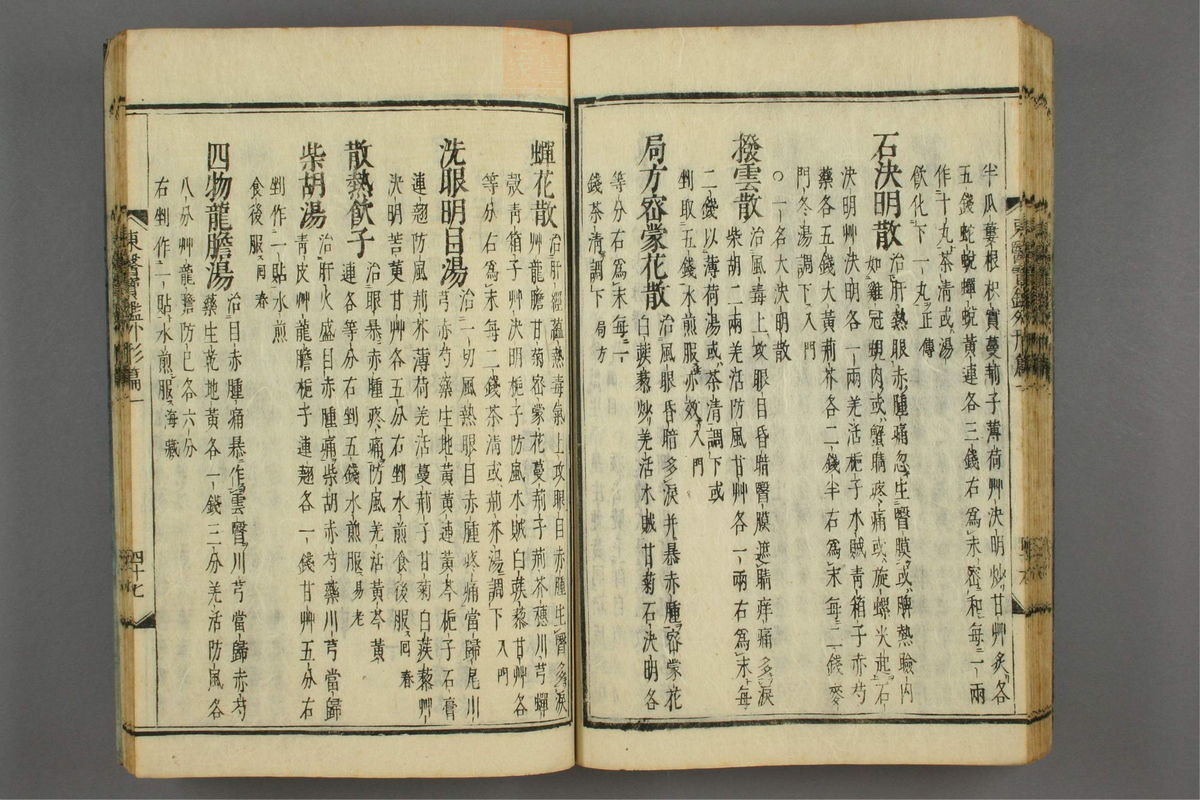 半瓜蔞根枳實蔓荊子薄荷艸決明炒甘艸炙各
五錢蛇蛻蟬蛻黃連各三錢右爲末密和每一兩
作十丸茶清或湯
飲化下一丸正傳
石決明散治肝熱眼赤腫痛忽生瞖膜或脾熱瞼內
如雞冠蜆肉或蟹睛疼痛或旋螺火起石
決明艸決明各一兩羌活梔子木賊青箱子赤芍
藥各五錢大黃荊芥各二錢半右爲末每二錢麥
門冬湯調下入門
○一名大決明散
撥雲散治風毒上攻眼目昏暗瞖膜遮睛痒痛多淚
柴胡二兩羌活防風甘艸各一兩右爲末每
二錢以薄荷湯或茶清調下或
剉取五錢水煎服亦效入門
局方密蒙花散治風眼昏暗多淚并暴赤腫密蒙花
白蒺藜炒羌活木賊甘菊石決明各
等分右爲末每二
錢茶清調下局方
蟬花散治肝經蘊熱毒氣上攻眼目赤腫生瞖多淚
艸龍膽甘菊密蒙花蔓荊子荊芥穗川芎蟬
殼青箱子艸決明梔子防風木賊白蒺藜甘艸各
等分右爲末每二錢茶清或荊芥湯調下入門
洗眼明目湯治一切風熱眼目赤腫疼痛當歸尾川
芎赤芍藥生地黃黃連黃芩梔子石膏
連翹防風荊芥薄荷羌活蔓荊子甘菊白蒺藜艸
決明苦黃甘艸各五分右剉水煎食後服回春
散熱飲子治眼暴赤腫疼痛防風羌活黃芩黃
連各等分右剉五錢水煎服易老
柴胡湯治肝火盛目赤腫痛柴胡赤芍藥川芎當歸
青皮艸龍膽梔子連翹各一錢甘艸五分右
剉作一貼水煎
食後服回春
四物龍膽湯治目赤腫痛暴作雲瞖川芎當歸赤芍
藥生乾地黃各一錢三分羌活防風各
八分艸龍膽防已各六分
右剉作一貼水煎服海藏
東醫寶鑑外形篇一
四十七